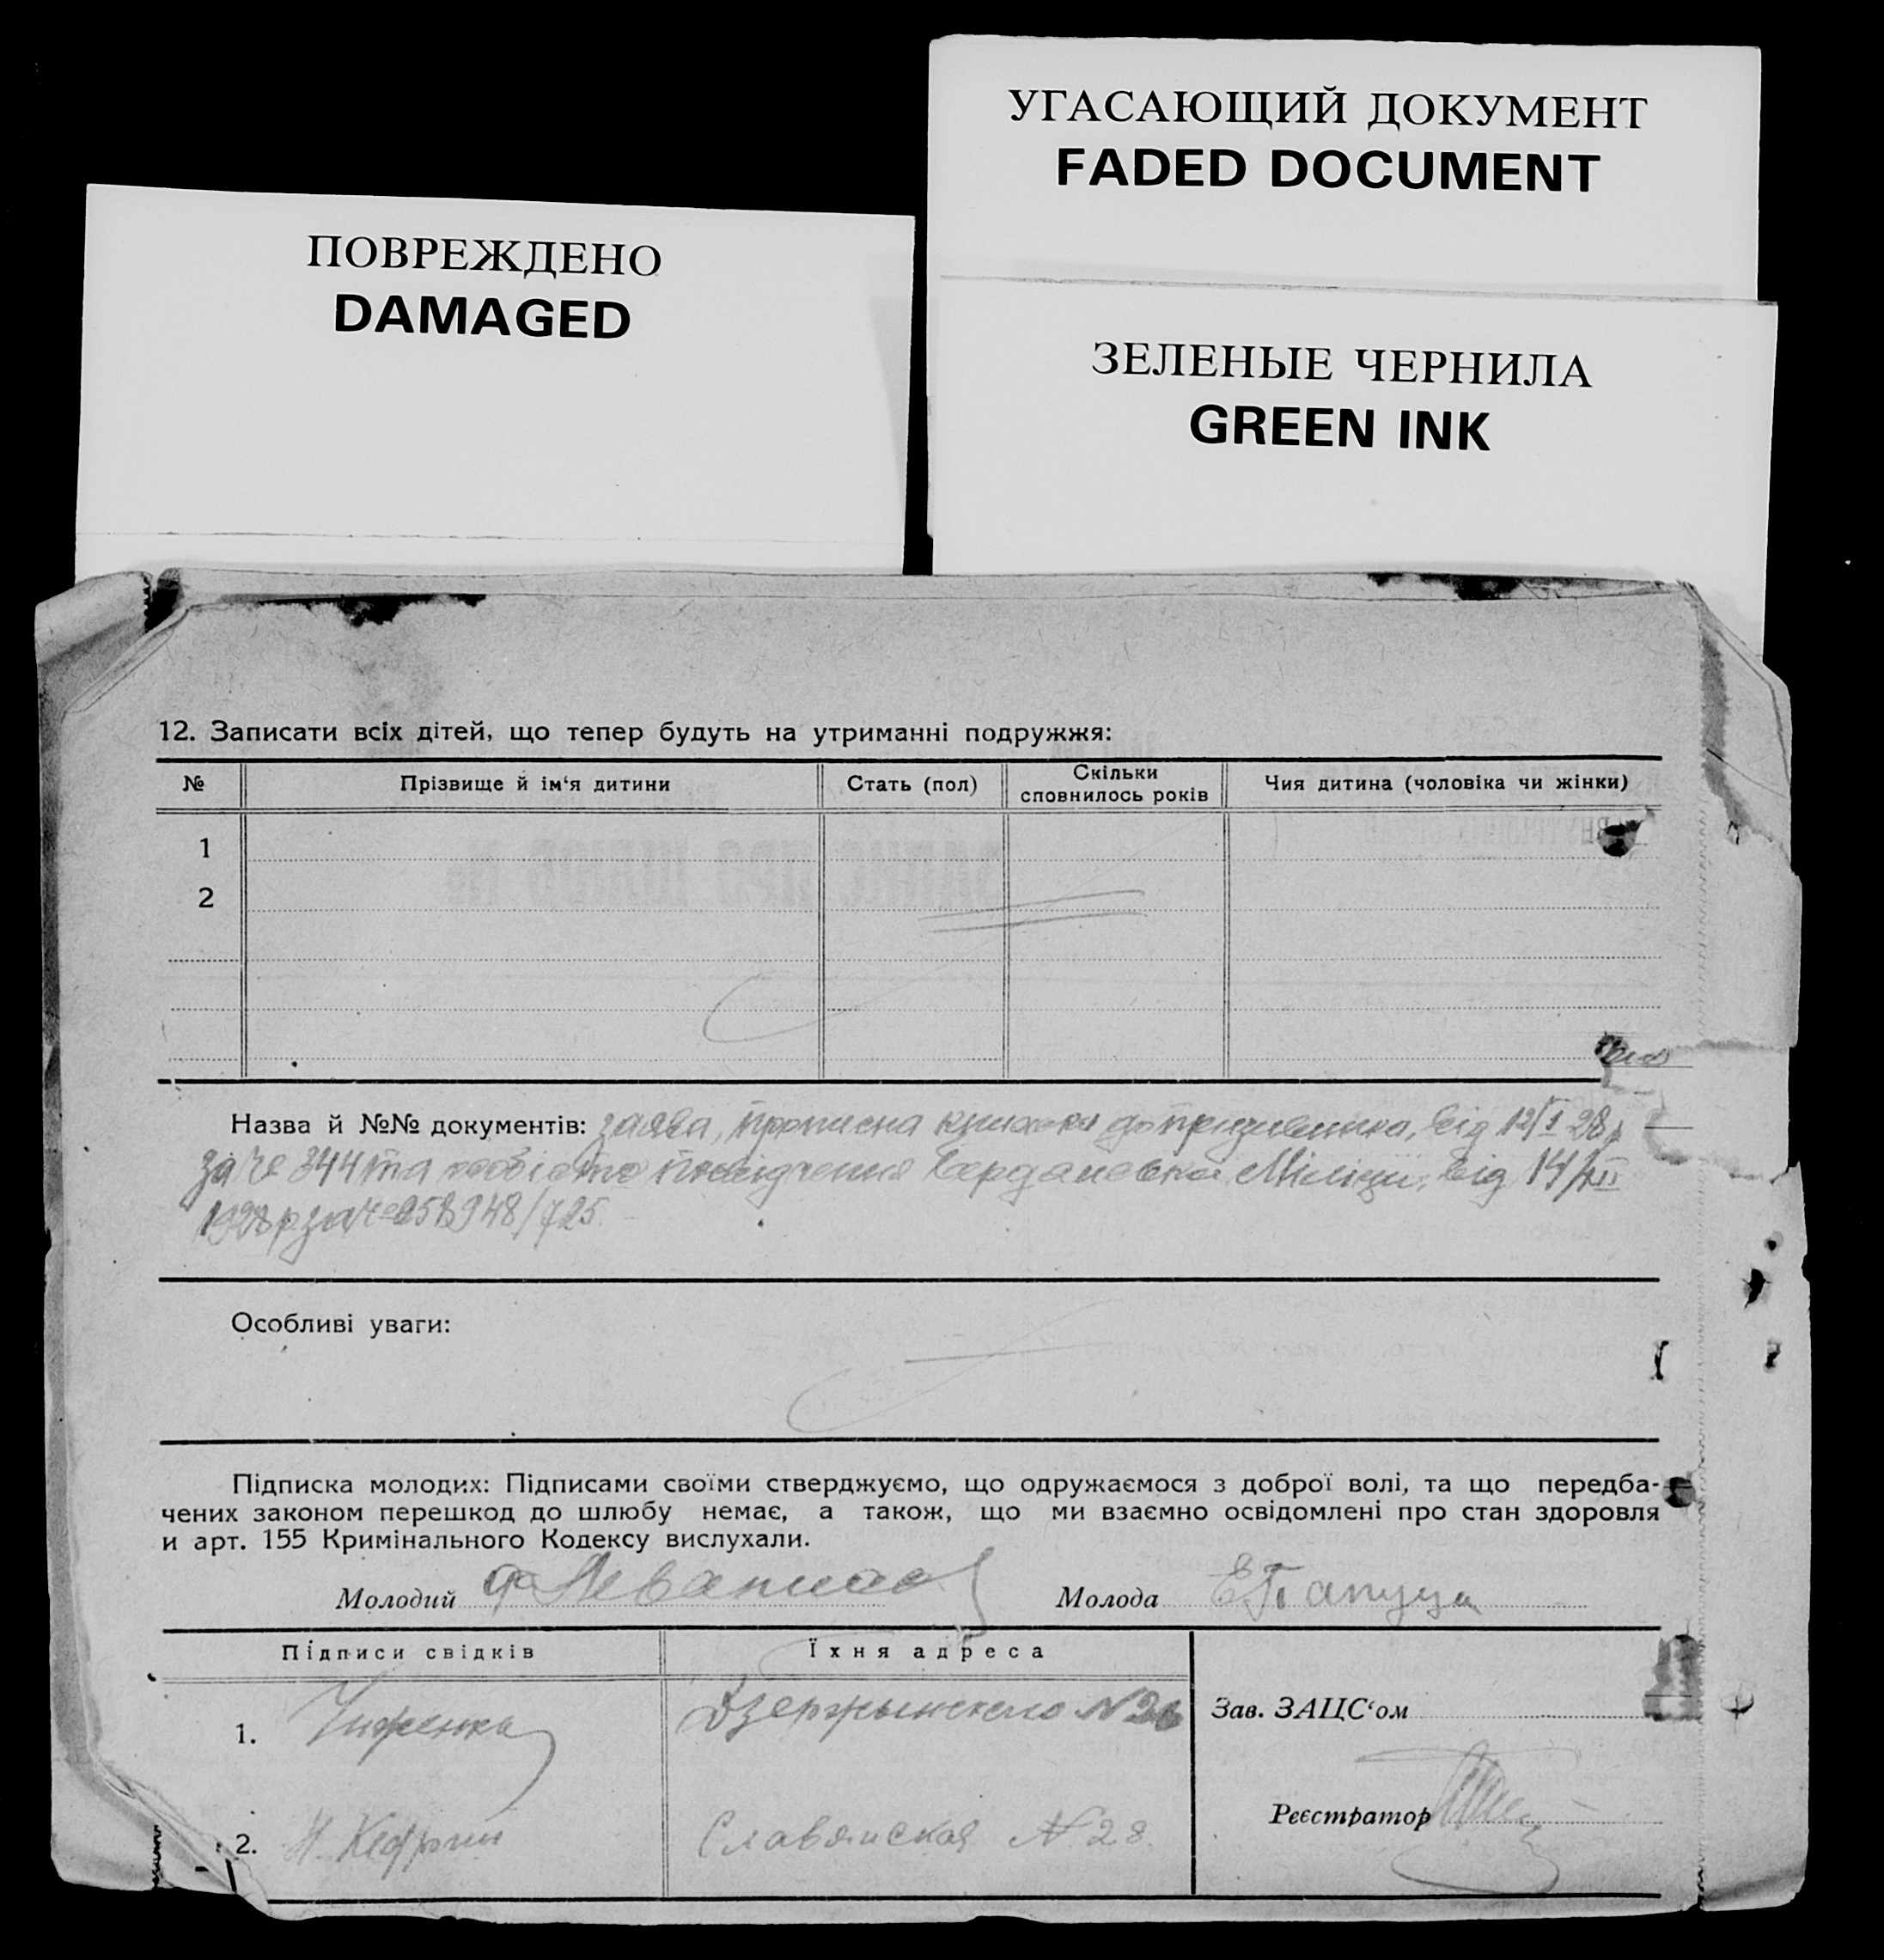 УГАСАЮЩИЙ ДОКУМЕНТ
FADED DOCUMENT
ПОВРЕЖДЕНО
DAMAGED
ЗЕЛЕНЫЕ ЧЕРНИЛА
GREEN INK
12. Записати всіх дітей, що тепер будуть на утриманні подружжя:
№ Прізвище й ім‘я дитини Стать (пол) Скільки сповнилось років Чия дитина (чоловіка чи жінки)
1
2
Назва й №№ документів: заява, прописна книжка допризивника, від 12/I 28р
за № 344 та посвідчення Міліции, від 14/
1928р за №
Особливі уваги:
Підписка молодих: Підписами своїми стверджуємо, що одружаємося з доброї волі, та що передба-
чених законом перешкод до шлюбу немає, а також, що ми взаємно освідомлені про стан здоровля
и арт. 155 Кримінального Кодексу вислухали.
Молодий Молода ЕПапуца
Підписи свідків Їхня адреса
Зав. ЗАЦС‘ом
1. Дзержынского №26
Реєстратор
2. Славянская №28.